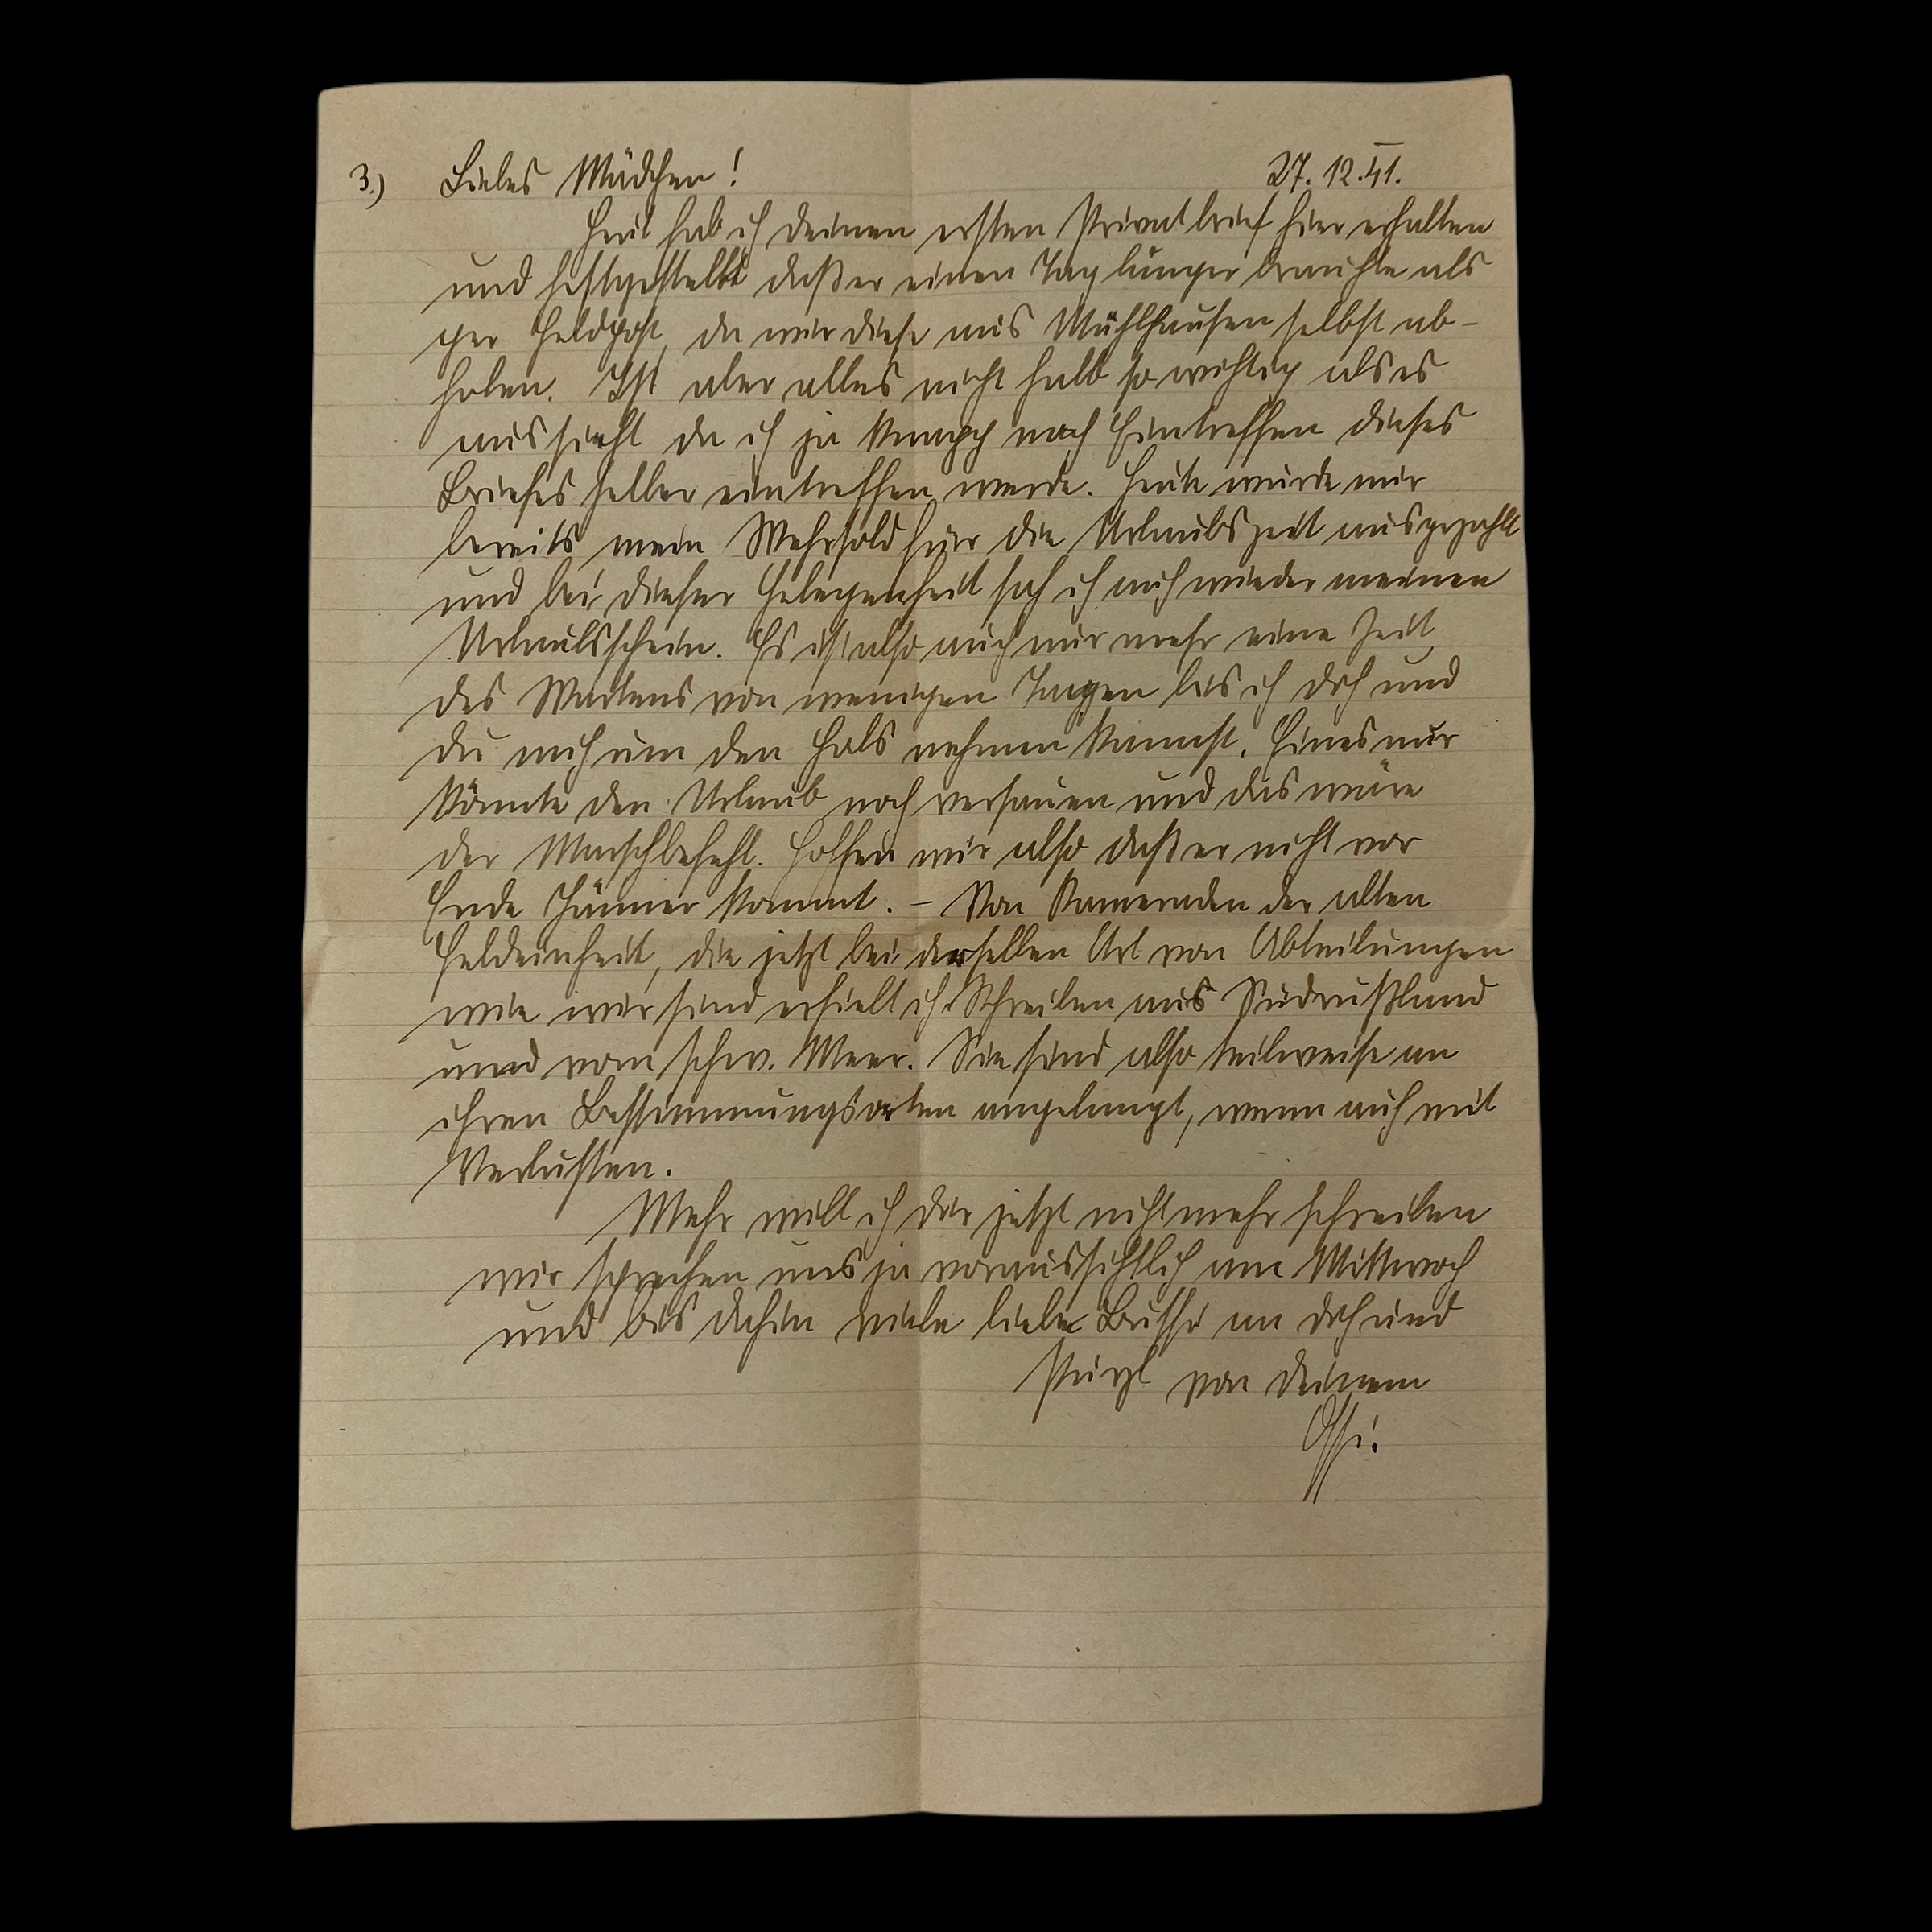 3.) Liebes Mädchen! 27.12.41.
Heut hab ich deinen ersten Privatbrief hier erhalten
und festgestellt daß er einen Tag länger brauchte als
per Feldpost, da wir diese aus Mühlhausen selbst ab-
holen. Ist aber alles nicht halb so wichtig als es
aussieht da ich ja knapp nach Eintreffen dieses
Briefes selber eintreffen werde. Heute wurde mir
bereits mein Wehrsold für die Urlaubszeit ausgezahlt
und bei dieser Gelegenheit sah ich auch wieder meinen
Urlaubsschein. Es ist also auch nur mehr eine Zeit
des Wartens von wenigen Tagen bis ich dich und
du mich um den Hals nehmen kannst. Eines nur
könnte den Urlaub noch versauen und das wäre
der Marschbefehl. Hoffen wir also daß er nicht vor
Ende Jänner kommt. – Von Kameraden der alten
Feldeinheit, die jetzt bei derselben Art von Abteilungen
wie wir sind erhielt ich Schreiben aus Südrußland
und vom schw. Meer. Sie sind also teilweise an
ihren Bestimmungsorten angelangt, wenn auch mit
Verlusten.
Mehr will ich dir jetzt nicht mehr schreiben
wir sprechen uns ja voraussichtlich am Mittwoch
und bis dahin viele liebe Bussi an dich und
von deinem
Ossi.